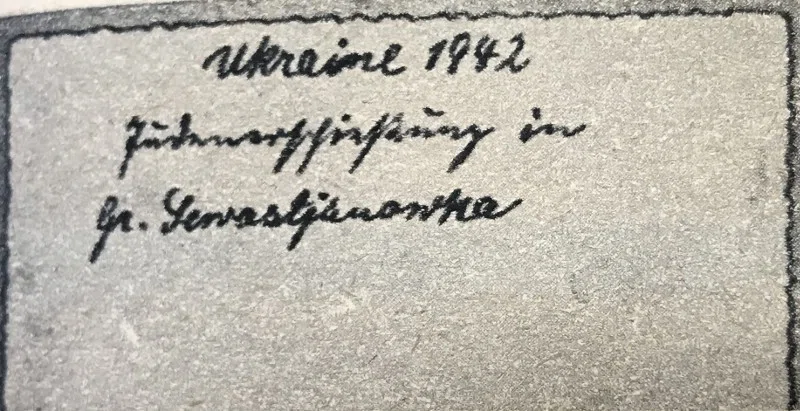 Ukraine 1942
Judenerschießung in
Gr. Sewastjanowka